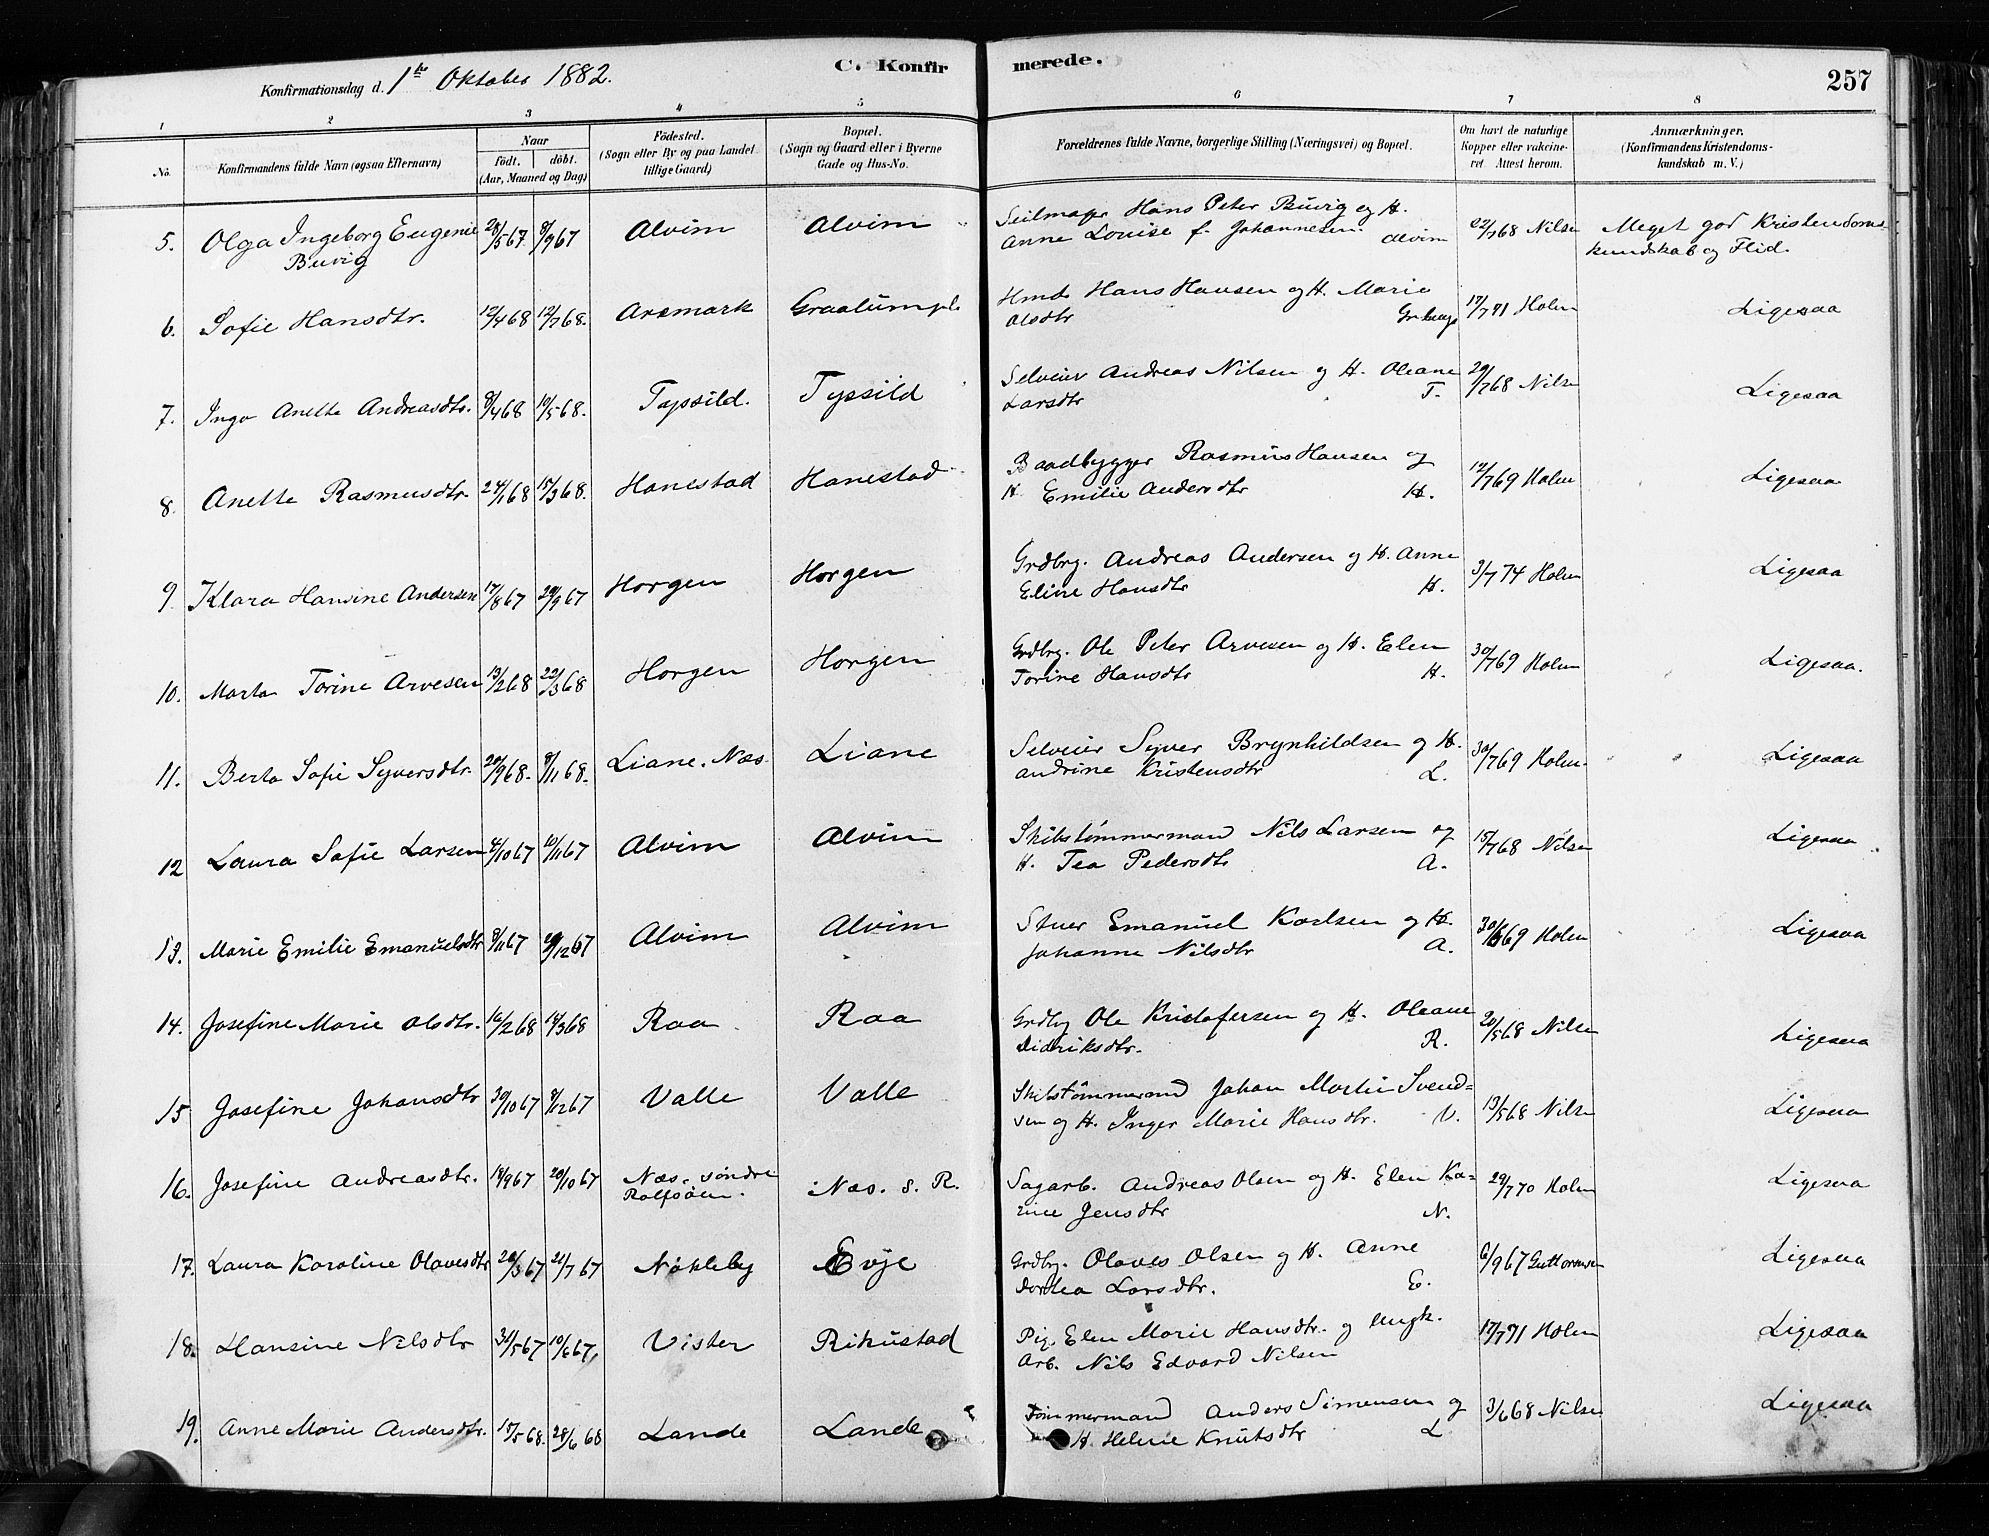 Konfirmationsdag d. 1ste Oktober 1882.
C. Konfir
merede.
257
1 2 3 4 5 6 7 8
No.
Konfirmandens fulde Navn (ogsaa Efternavn)
Naar
födt. döbt.
(Aar, Maaned og Dag)
Födested.
(Sogn eller By og paa Landet
tillige Gaard)
Bopæl.
(Sogn og Gaard eller i Byerne
Gade og Hus-No.
Forældrenes fulde Navne, borgerlige Stilling (Næringsvei) og Bopæl.
Om havt de naturlige
Kopper eller vakcine-
ret. Attest herom.
Anmærkninger.
(Konfirmandens Kristendoms-
kundskab m. V.)
5. Olga Ingeborg Eugenie 28/5 67 8/9 67 Alvim Alvim Seilmager Hans Peter Buvig og H. 22/7 68 Nilsen Meget god Kristendoms-
Buvig Anne Louise f. Johannesen Alvim kundskab og Flid.
6. Sofie Hansdtr. 12/4 68 12/7 68. Aremark Graalumpl. Hmd. Hans Hansen og H. Marie 17/7 71 Holm Ligesaa
Olsdtr
7. Inga Anette Andreasdtr. 8/4 68 10/5 68. Typsild. Typsild Selveier Andreas Nilsen og H. Oleane 29/7 68 Nilsen Ligesaa
Larsdtr T.
8. Anette Rasmusdtr. 24/1 68 15/3 68. Hanestad Hanestad Baadbygger Rasmus Hansen og 12/7 69 Holm Ligesaa
H. Emilie Andersdtr H.
9. Klara Hansine Andersen 17/8 67 29/9 67 Horgen Horgen Grdbrg. Andreas Andersen og H. Anne 3/7 74 Holm Ligesaa
Eline Hansdtr H.
10. Marta Torine Arvesen 13/2 68 22/3 68 Horgen Horgen Grdbrg. Ole Peter Arvesen og H. Elen 30/7 69 Holm Ligesaa.
Torine Hansdtr H.
11. Berta Sofie Syversdtr. 20/9 68. 8/11 68. Liane. Næs. Liane Selveier Syver Brynhildsen og H. 30/7 69 Holm. Ligesaa
Andrine Kristensdtr L.
12 Laura Sofie Larsen 4/10 67 10/11 67 Alvim Alvim Skibstømmermand Nils Larsen og 15/7 68 Nilsen Ligesaa
H. Tea Pedersdtr A.
13. Marie Emilie Emanuelsdtr 8/11 67 /12 67 Alvim Alvim Stuer Emanuel Karlsen og H. 30/6 69 Holm Ligesaa
Johanne Nilsdtr A.
14. Josefine Marie Olsdtr. 16/2 68 14/3 68 Raa Raa Grdbg Ole Kristofersen og H. Oleane 20/5 68 Nilsen Ligesaa
Didriksdtr. R.
15 Josefine Johansdtr 30/10 67 8/12 67 Valle Valle Skibstømmermand Johan Martin Svend-
sen og H. Inger Marie Hansdtr. V. 13/5 68 Nilsen Ligesaa
16. Josefine Andreasdtr. 14/9 67 20/10 67 Næs. søndre Næs. s. R. Sagarb. Andreas Olsen og H. Elen Ka- 29/7 70 Holm Ligesaa
Rolfsøen. rine Jensdtr N.
17. Laura Karoline Olavesdtr 20/3 67 21/7 67 Nökleby Evje Grdbrg. Olaves Olsen og H. Anne 6/9 67 Guttormsen Ligesaa
Dortea Larsdtr. E.
18. Hansine Nilsdtr 31/5 67 10/6 67, Vister Rikustad Pig. Elen Marie Hansdtr. og Ungk. 17/7 71 Holm Ligesaa
Arb. Nils Edvard Nilsen
19. Anne Marie Andersdtr. 17/5 68. 28/6 68 Lande Lande Tömmermand Anders Simensen og 3/6 68 Nilsen Ligesaa
H. Helene Knutsdtr L